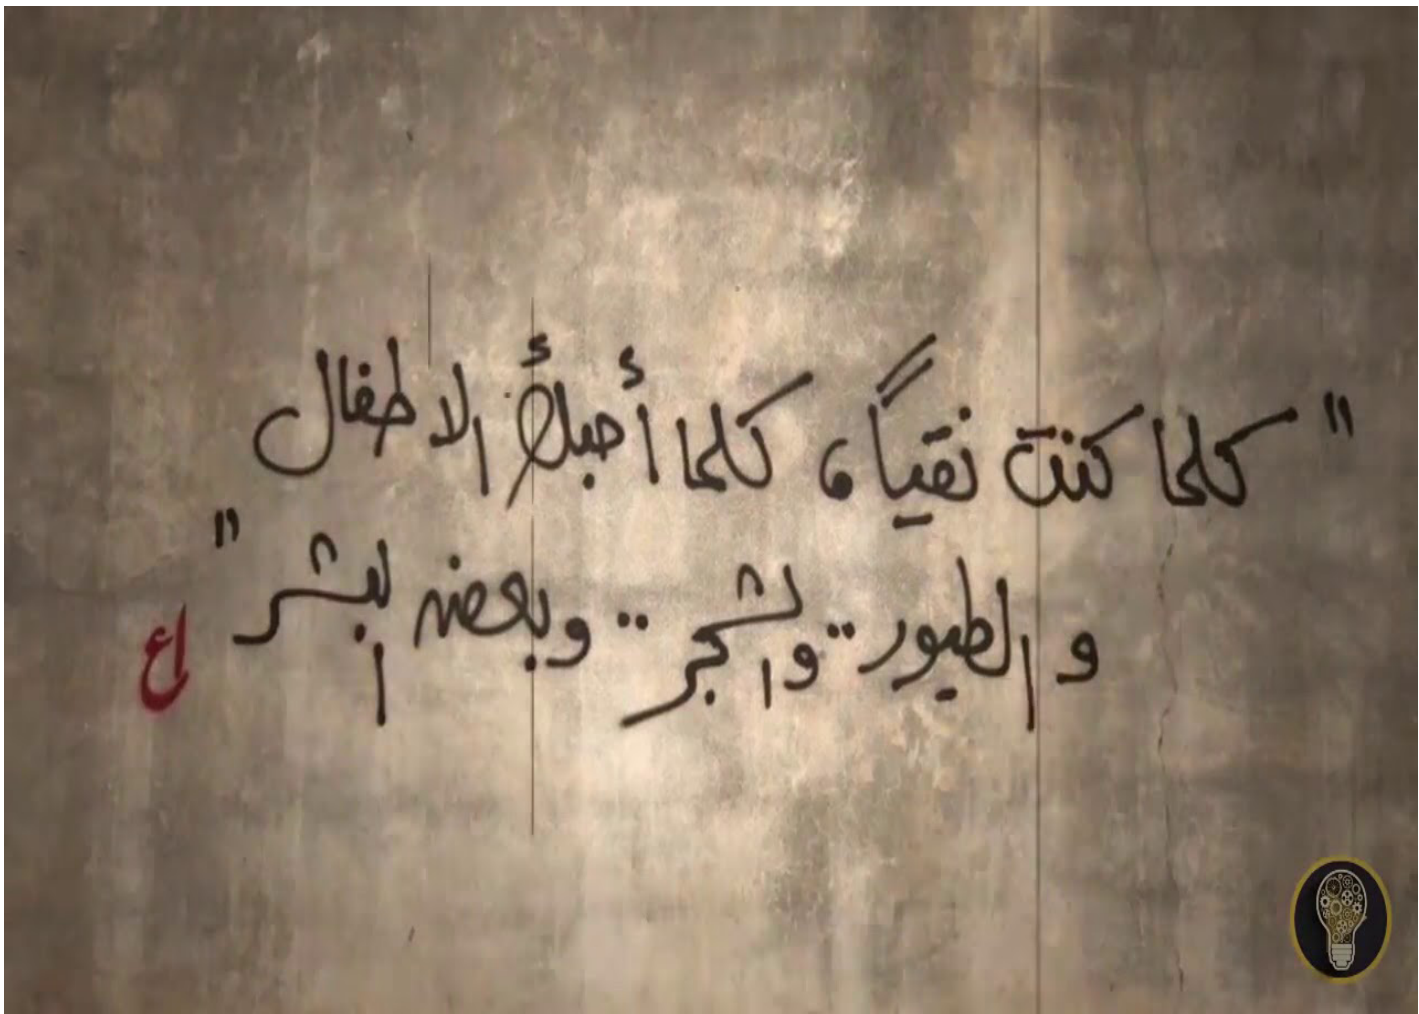 " كلما كنت نقياً، كلما أحبك الاطفال
و الطيور .. والشجر .. وبعض البشر "
اع